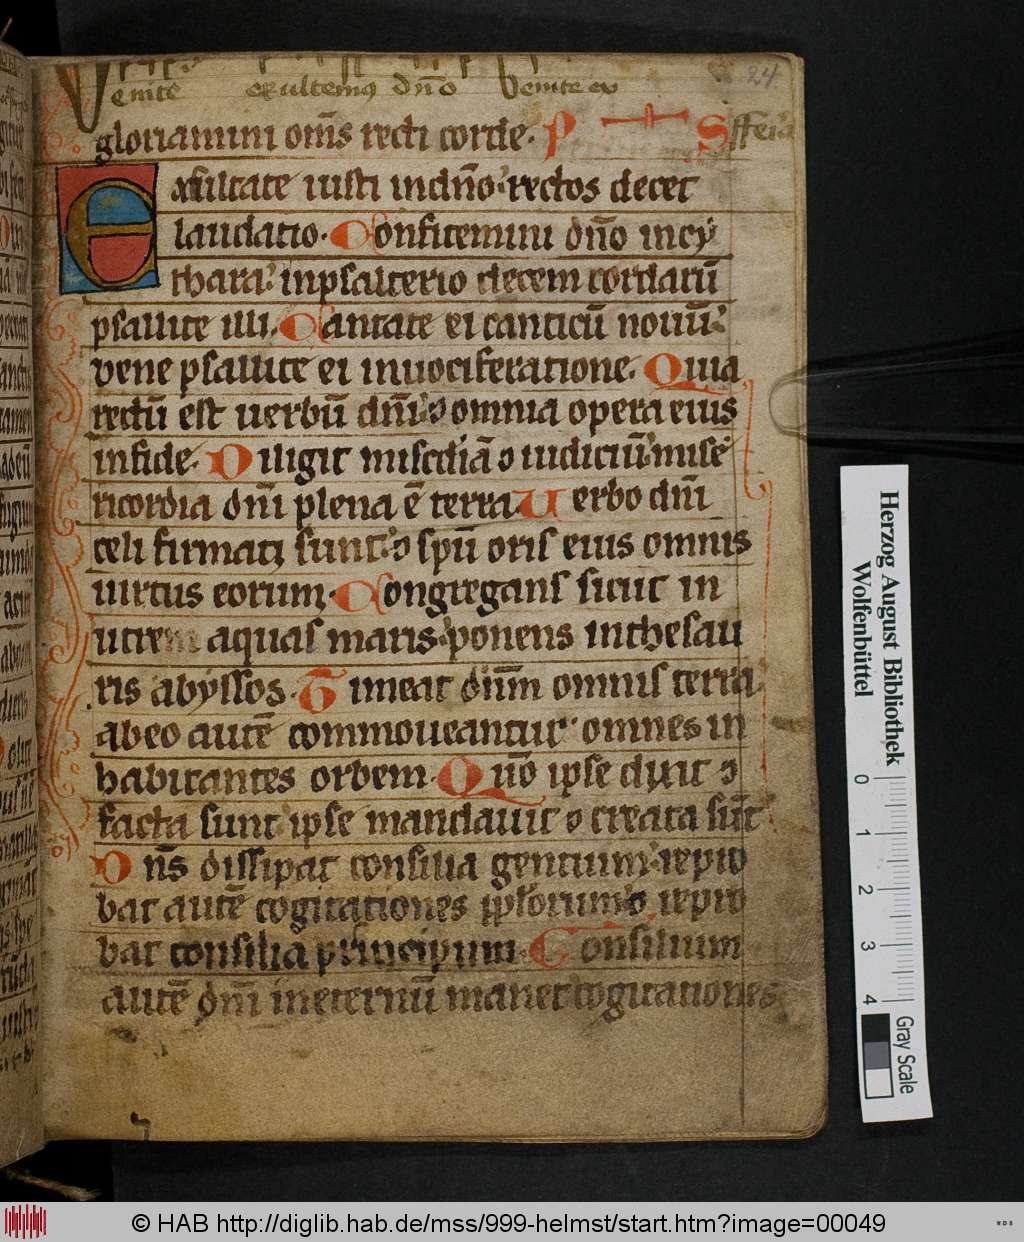 24.
Venite exultemꝯ dn̄o Venite ex
gloriamini om̄s recti corde. P S fferia
Exultate iusti in dn̄o: rectos decet
laudatio. Confitemini dn̄o in cy
thara: in psalterio decem cordarū
psallite illi. Cantate ei canticū nouū:
bene psallite ei in uociferatione. Quia
rectū est uerbū dn̄i: ⁊ omnia opera eius
in fide. Diligit misc̄diā ⁊ iudiciū: mise
ricordia dn̄i plena ē terra. Uerbo dn̄i
celi firmati sunt: ⁊ sp̄u oris eius omnis
uirtus eorum. Congregans sicut in
utrem aquas maris: ponens in thesau
ris abyssos. Timeat dn̄m omnis terra
ab eo autē commoueantur omnes in
habitantes orbem. Qn̄o ipse dixit ⁊
facta sunt ipse mandauit ⁊ creata sūt
Dn̄s dissipat consilia gentium: repro
bat autē cogitationes pp̄lorum ⁊ repro
bat consilia principum. Consilium
autē dn̄i in eternū manet cogitationes
Herzog August Bibliothek
Wolfenbüttel
0 1 2 3 4
Gray Scale
© HAB http://diglib.hab.de/mss/999-helmst/start.htm?image=00049